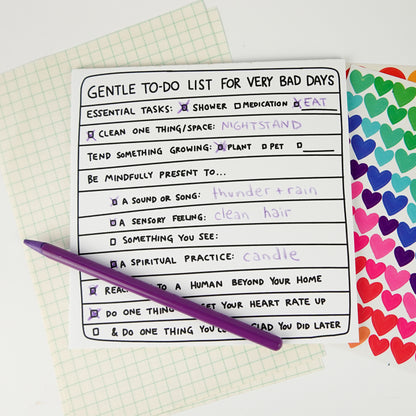 GENTLE TO-DO LIST FOR VERY BAD DAYS
ESSENTIAL TASKS: SHOWER MEDICATION EAT
CLEAN ONE THING/SPACE: NIGHTSTAND
TEND SOMETHING GROWING: PLANT PET
BE MINDFULLY PRESENT TO...
A SOUND OR SONG: thunder + rain
A SENSORY FEELING: clean hair
SOMETHING YOU SEE:
A SPIRITUAL PRACTICE: candle
TO A HUMAN BEYOND YOUR HOME
DO ONE YOUR HEART RATE UP
& DO ONE THING GLAD YOU DID LATER